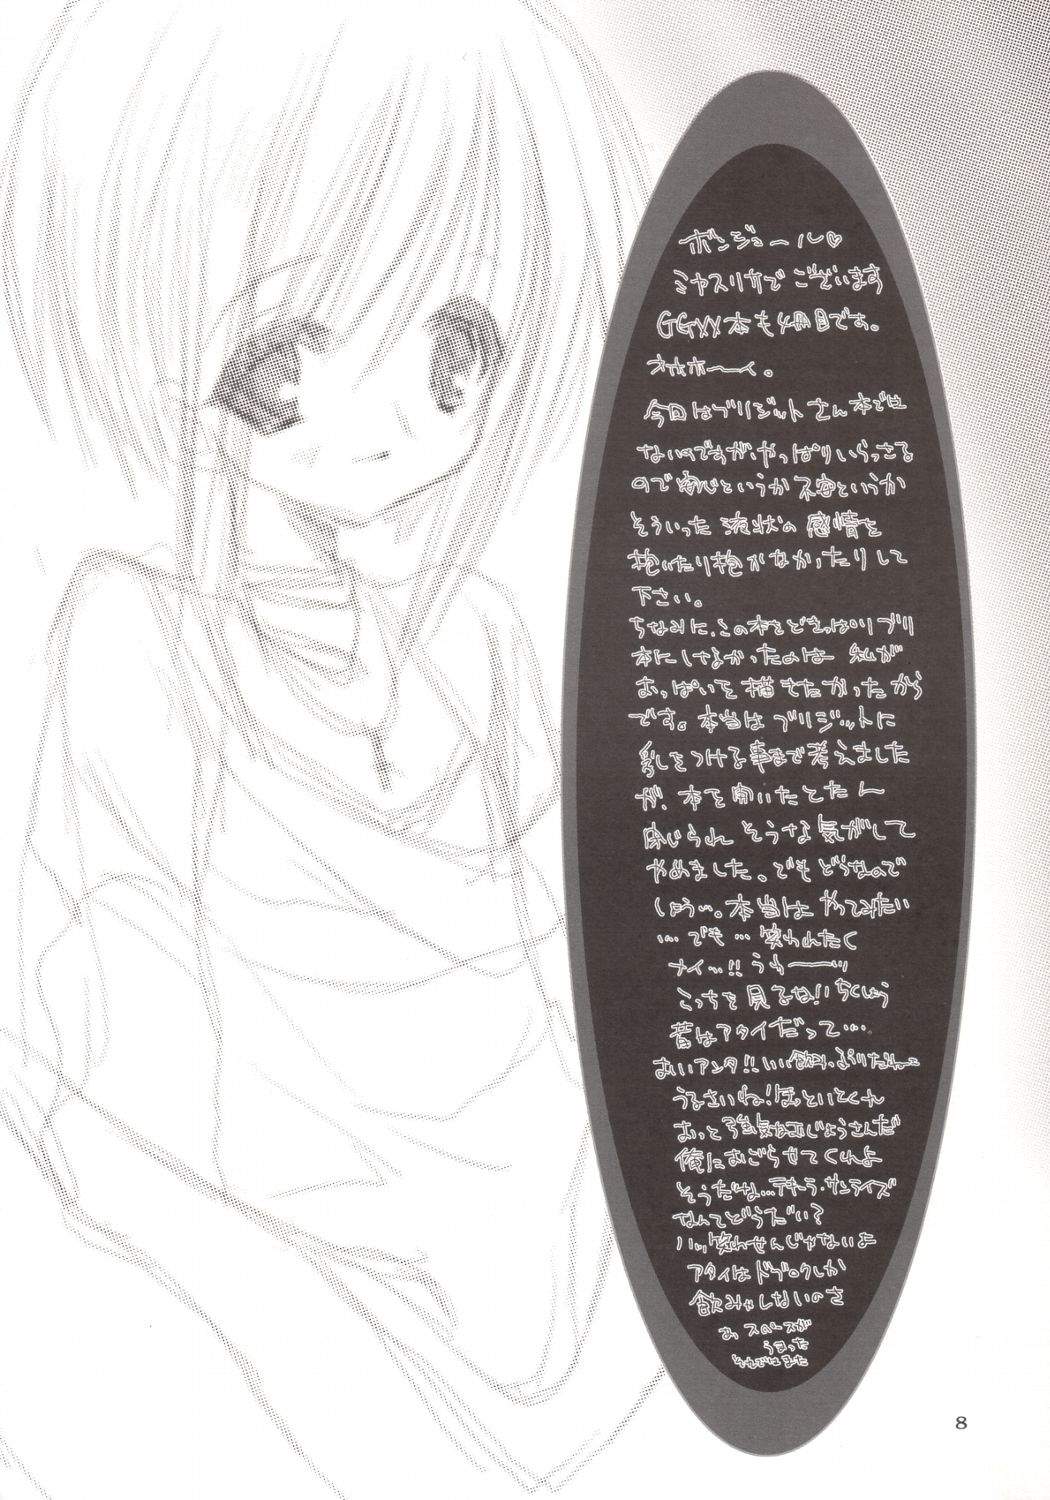 ボンジョール♡
ミヤスリサでございます
GGXX本も4冊目です。
ネオホーイ。
今回はブリジットさん本では
ないですが、やっぱりいらっさる
ので安心というか不安というか
そういった液状の感情を
抱いたり抱かなかったりして
下さい。
ちなみに、この本をどきっぱりブリ
本にしなかったのは 私が
おっぱいを描きたかったから
です。本当はブリジットに
乳をつける事まで考えました
が、本を開いたとたん
閉じられ そうな気がして
やめました。でもどうなので
しょう…。本当はやってみたい
…でも…笑われたく
ナイ…!!うわーーッ
こっちを見るね!!ちくしょう
昔はアタイだって…。
おいアンタ!!いい飲みっぷりだねェ
うるさいね!ほっといとくれ
おっと強気なおじょうさんだ
俺におごらせてくれよ
そうだな…テキーラ・サンライズ
なんてどうだい?
ハッ笑わせんじゃないよ
アタイはドブロクしか
飲みゃしないのさ
あ スペースが
うまった
それではまた
8